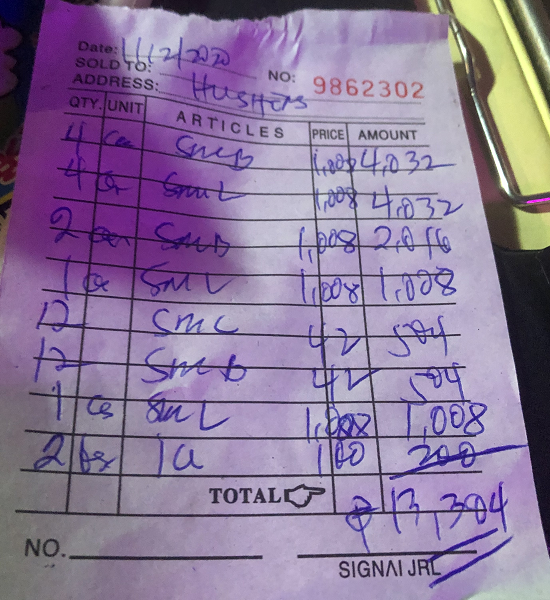 Date: 1/12/2020
SOLD TO:
NO: 9862302
ADDRESS: HUSHERS
QTY. UNIT ARTICLES PRICE AMOUNT
4 cs SMB 1,008 4,032
4 cs SML 1,008 4,032
2 cs SMB 1,008 2,016
1 cs SML 1,008 1,008
12 SML 42 504
12 SMB 42 504
1 cs SML 1,008 1,008
2 bs 100 200
TOTAL ₱ 13,304
NO.
SIGNATURE